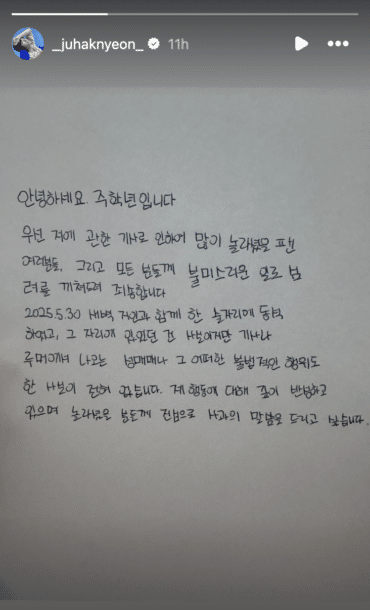 _juhaknyeon_ 11h
안녕하세요. 주학년입니다
우선 저에 관한 기사로 인하여 많이 놀라셨을 팬
여러분들, 그리고 모든 분들께 불미스러운 일로 심
려를 끼쳐드려 죄송합니다
2025.5.30 새벽 지인과 함께 한 술자리에 동석
하였고, 그 자리에 있었던 건 사실이지만 기사나
루머에서 나오는 성매매나 그 어떠한 불법적인 행위도
한 사실이 전혀 없습니다. 제 행동에 대해 깊이 반성하고
있으며 놀라셨을 분들께 진심으로 사과의 말씀을 드리고 싶습니다.